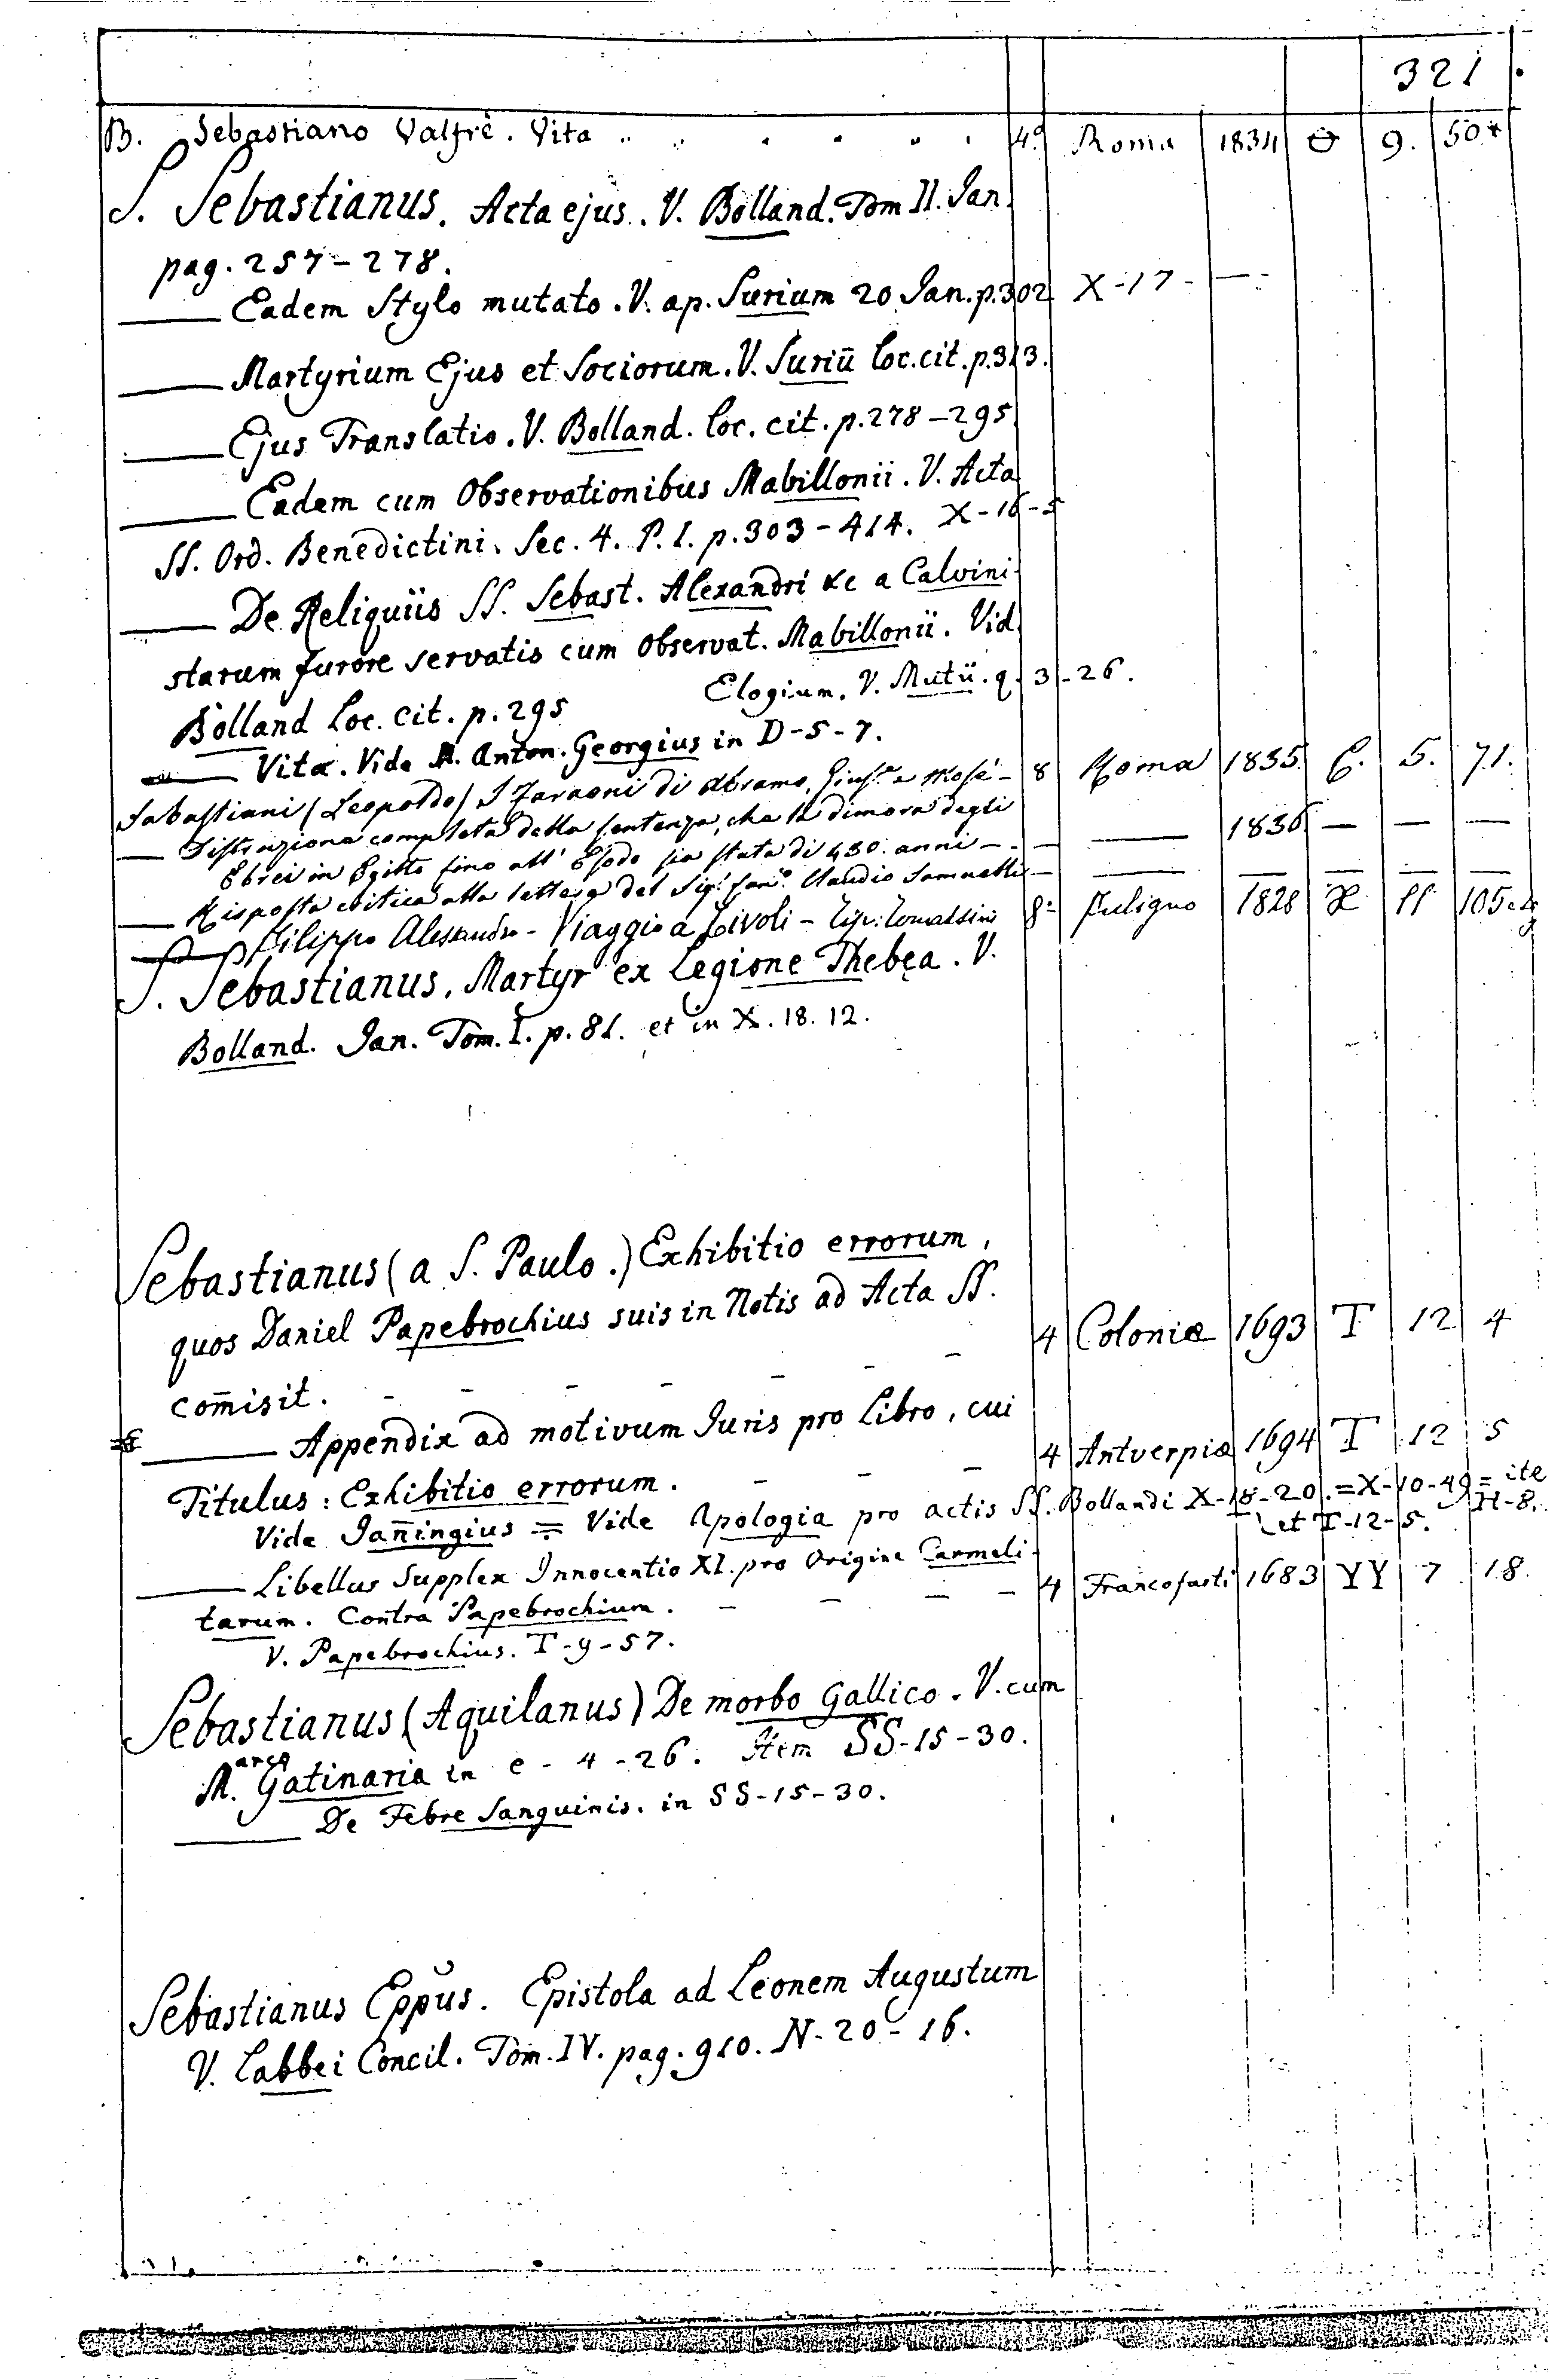 321
B. Sebastiano Valfrè. Vita 4º Roma 1834 9. 50*
S. Sebastianus. Acta ejus. V. Bolland. Tom II. Jan.
pag. 257-278.
—— Eadem Stylo mutato. V. ap. Surium 20 Jan. p. 302 X-17- — -
—— Martyrium Ejus et Sociorum. V. Suriū loc. cit. p. 313.
—— Ejus Translatio. V. Bolland. loc. cit. p. 278-295
—— Eadem cum Observationibus Mabillonii. V. Acta
SS. Ord. Benedictini. Sec. 4. P. I. p. 303-414. X-16-5
—— De Reliquiis SS. Sebast. Alexandri &c a Calvini-
starum furore servatis cum observat. Mabillonii. Vid.
Bolland Loc. cit. p. 295 Elogium. V. Mutii. q-3-26.
—— Vita. Vide M. Anton. Georgius in D-5-7.
Sabastiani (Leopoldo) I Faraoni di Abramo, Gius.e e Mosè - 8 Roma 1835. C. 5. 71.
—— Distruzione completa della sentenza, che la dimora degli
Ebrei in Egitto fino all' Esodo sia stata di 430. anni - - —— 1836 — — —
—— Risposta critica alla lettera del Sig. Can.º Claudio Samuelli - — — — — —
Filippo Alessandro - Viaggio a Tivoli - Tip: Tomassini 8º Fuligno 1828 11 105
S. Sebastianus, Martyr ex Legione Thebęa. V.
Bolland. Jan. Tom. I. p. 81. et in X. 18. 12.
Sebastianus (a S. Paulo.) Exhibitio errorum,
quos Daniel Papebrochius suis in Notis ad Acta SS.
com̄isit. - - - - - - - 4 Coloniæ 1693 T 12 4
—— Appendix ad motivum Juris pro Libro, cui
Titulus: Exhibitio errorum. - - - 4 Antverpiæ 1694 T 12 5
Vide Jan̄ingius = Vide Apologia pro actis SS. Bollandi X-18-20. = X-10-49 = ite
et T-12-5. H-8.
—— Libellus Supplex Innocentio XI. pro Origine Carmeli-
tarum. Contra Papebrochium. - - - - 4 Francofurti 1683 YY 7 18.
V. Papebrochius. T-9-57.
Sebastianus (Aquilanus) De morbo Gallico. V. cum
M.arco Gatinaria in e-4-26. Item SS-15-30.
—— De Febre Sanguinis. in SS-15-30.
Sebastianus Eppus. Epistola ad Leonem Augustum
V. Labbei Concil. Tom. IV. pag. 910. N-20-16.